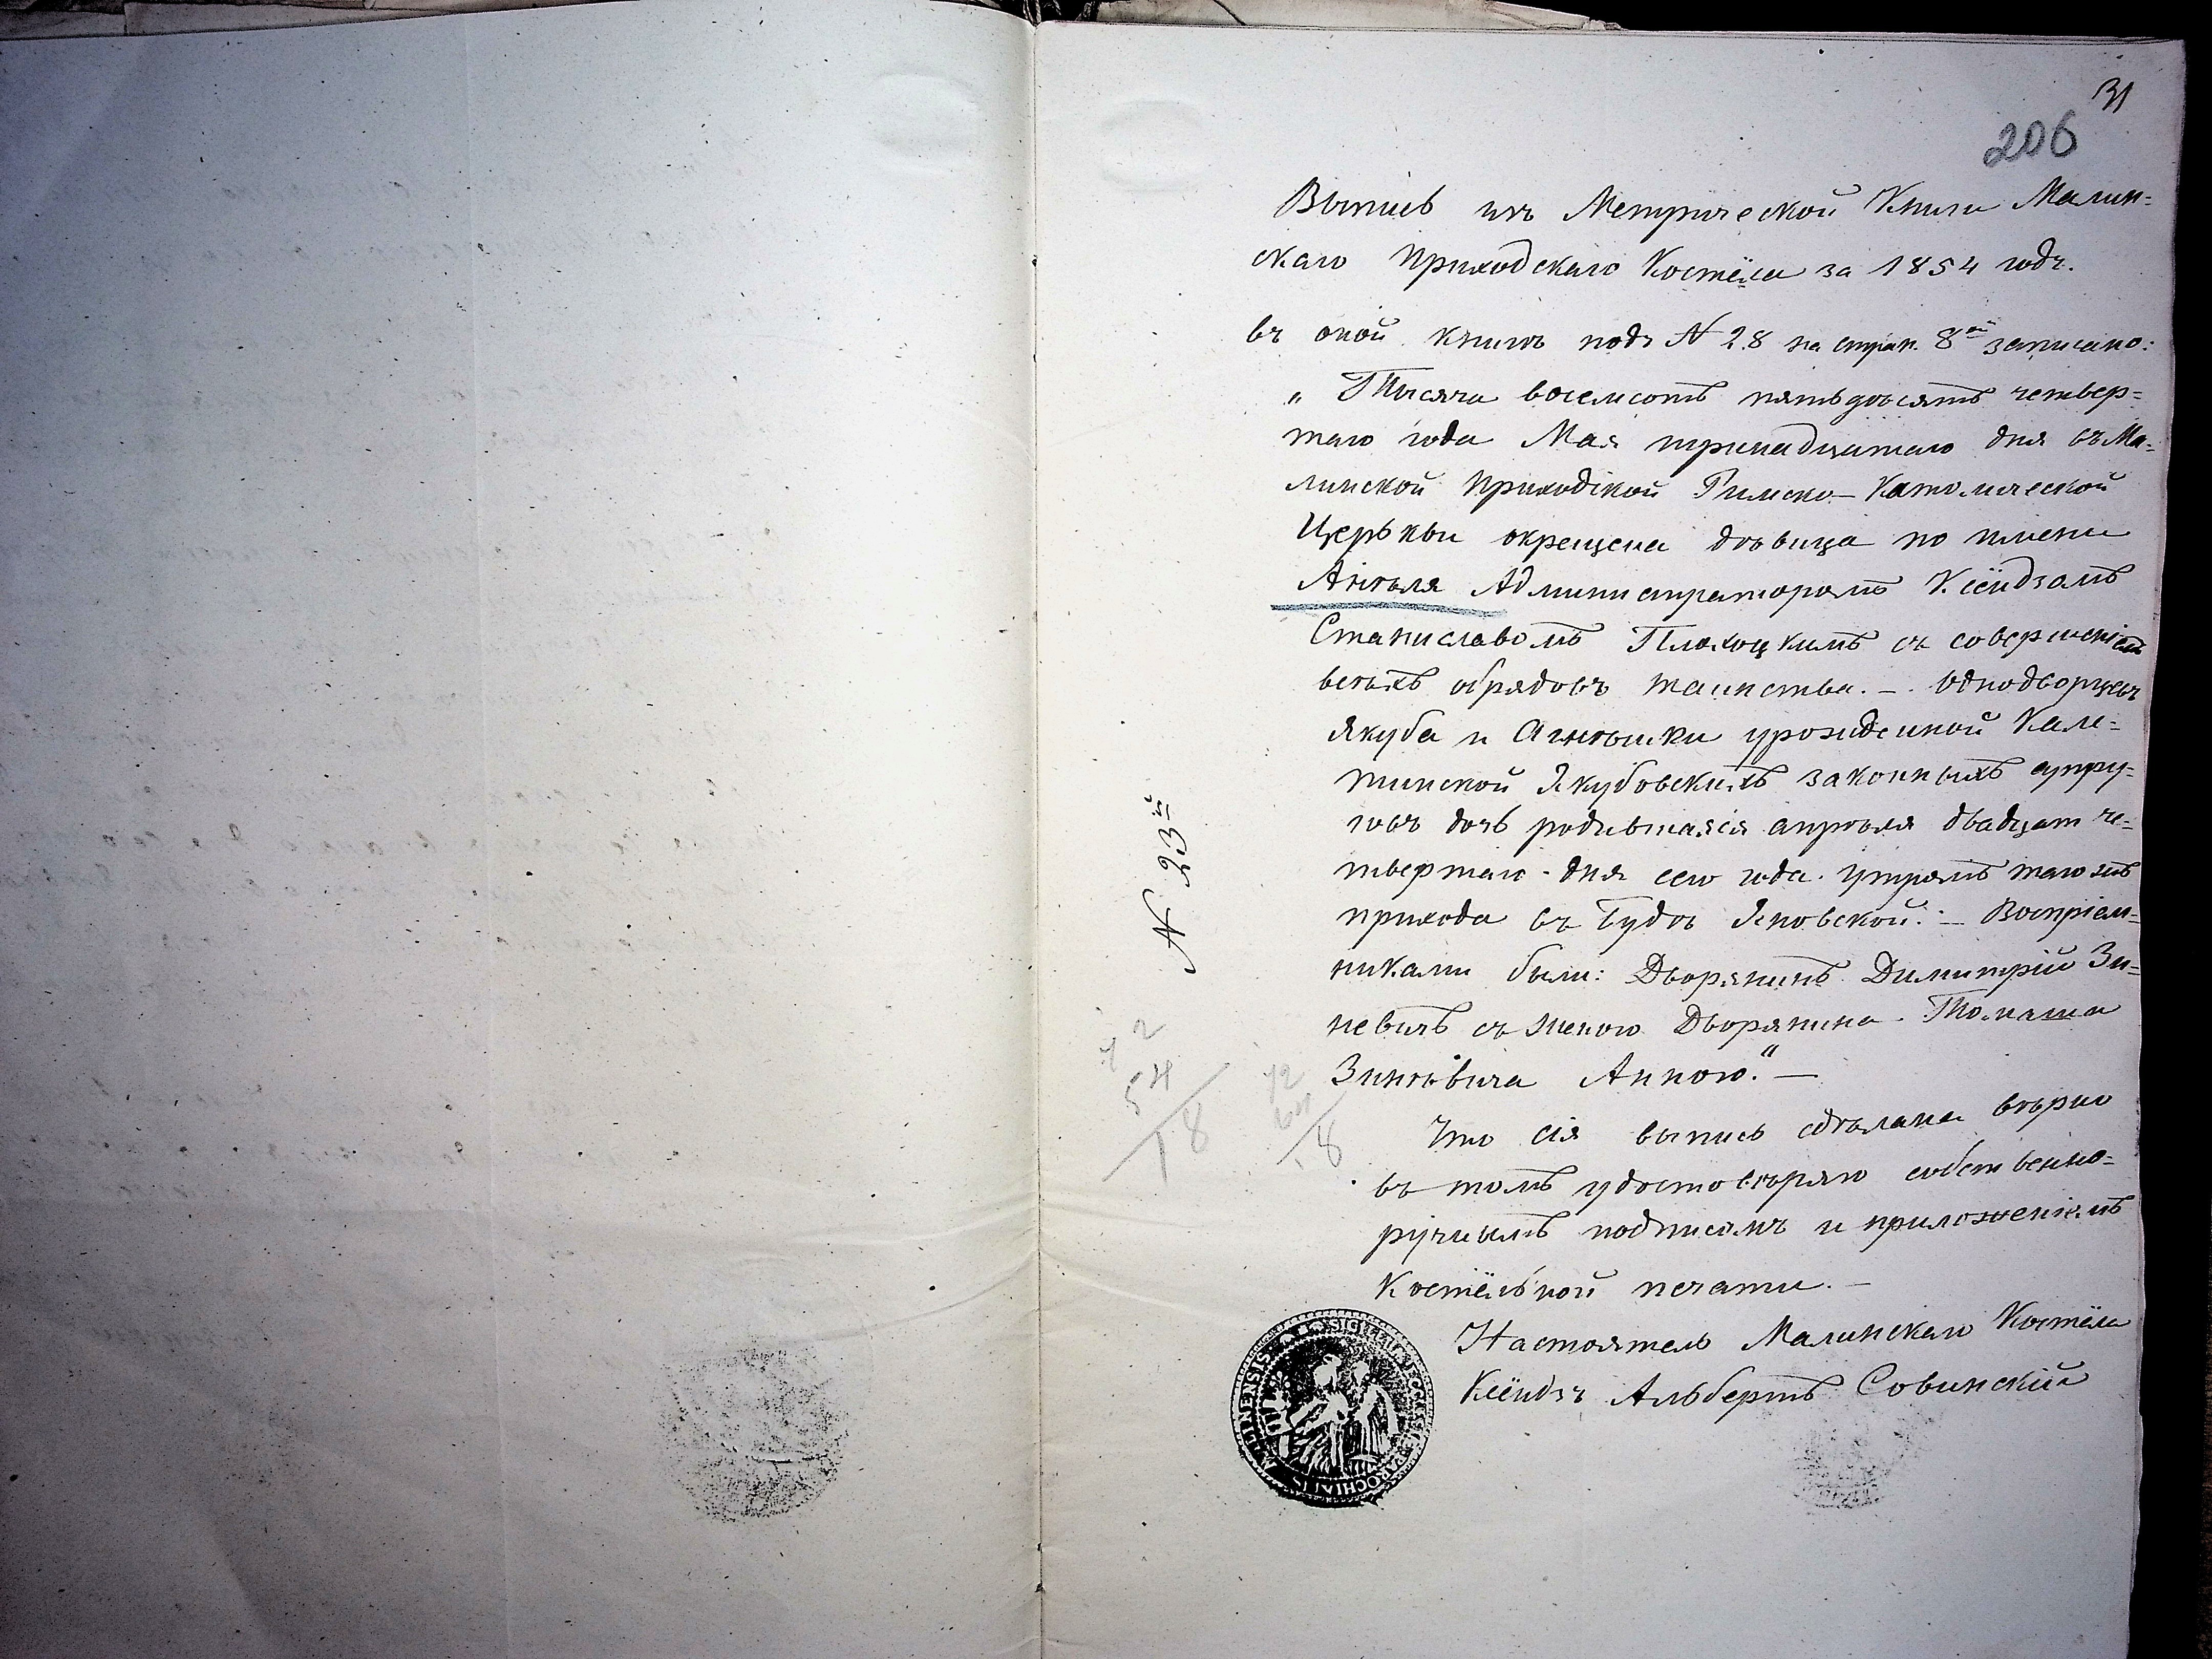 31
206
Выпись изъ Метрической Книги Малин=
скаго Приходскаго Костёла за 1854 годъ.
въ оной книгѣ подъ N 28 на стран. 8ой записано:
„ Тысяча восемсотъ пятьдесятъ четвер=
таго года Мая тринадцатаго дня въ Ма=
линской Приходской Римско-Католической
Церькви окрещена дѣвица по имени
Анѣеля Администраторомъ Ксёндзомъ
Станиславомъ Плохоцкимъ съ совершеніемъ
всѣхъ обрядовъ таинства. — Однодворцевъ
Якуба и Агнѣшки урожденной Кале=
тинской Якубовскихъ законныхъ супру=
говъ дочь родившаяся апрѣля двадцат че=
твертаго дня сего года утромъ того жъ
прихода въ Будѣ Яновской. — Воспріем=
никами были: Дворянинъ Димитрій Зи=
невичъ съ женою Дворянина Томаша
Зинѣвича Анною." —
Что сія выпись сдѣлана вѣрно
въ томъ удостовѣряю собственно=
ручнымъ подписомъ и приложеніемъ
Костёльной печати. —
Настоятель Малинскаго Костёла
Ксёндзъ Альбертъ Совинскій
N 23й
72
54
18
72
54
18
SIGILLUM ECCLESIAE PAROCHIALIS MALINENSIS